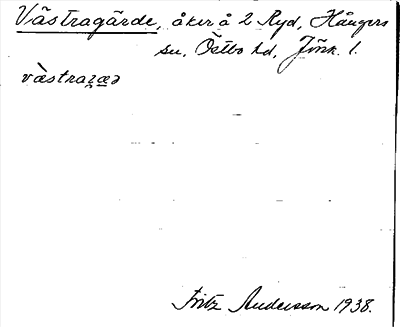 Västragärde, åker å 2 Ryd, Hångers
sn, Östbo hd, Jönk. l.
Fritz Andersson 1938.